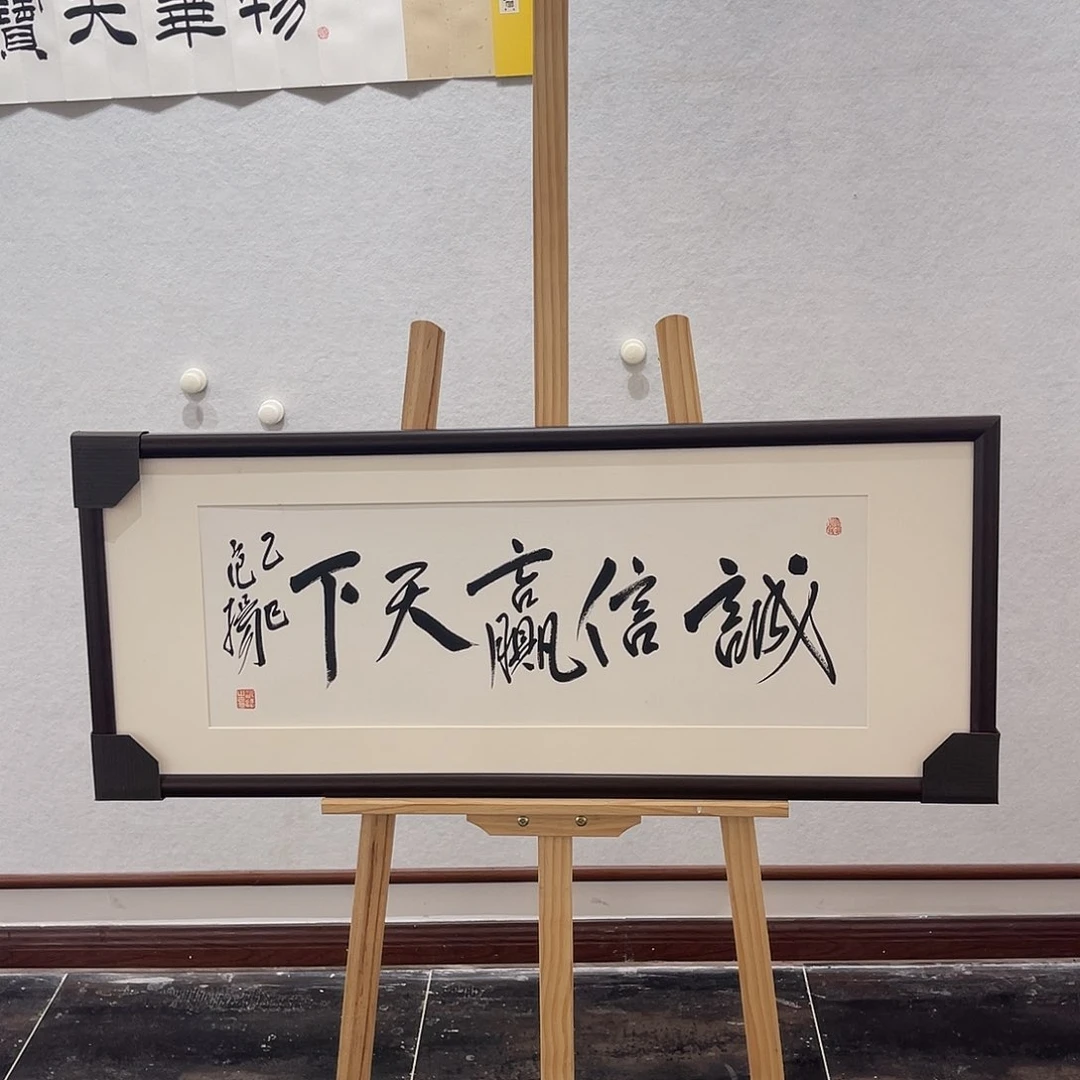 物華天寶
誠信贏天下
乙巳